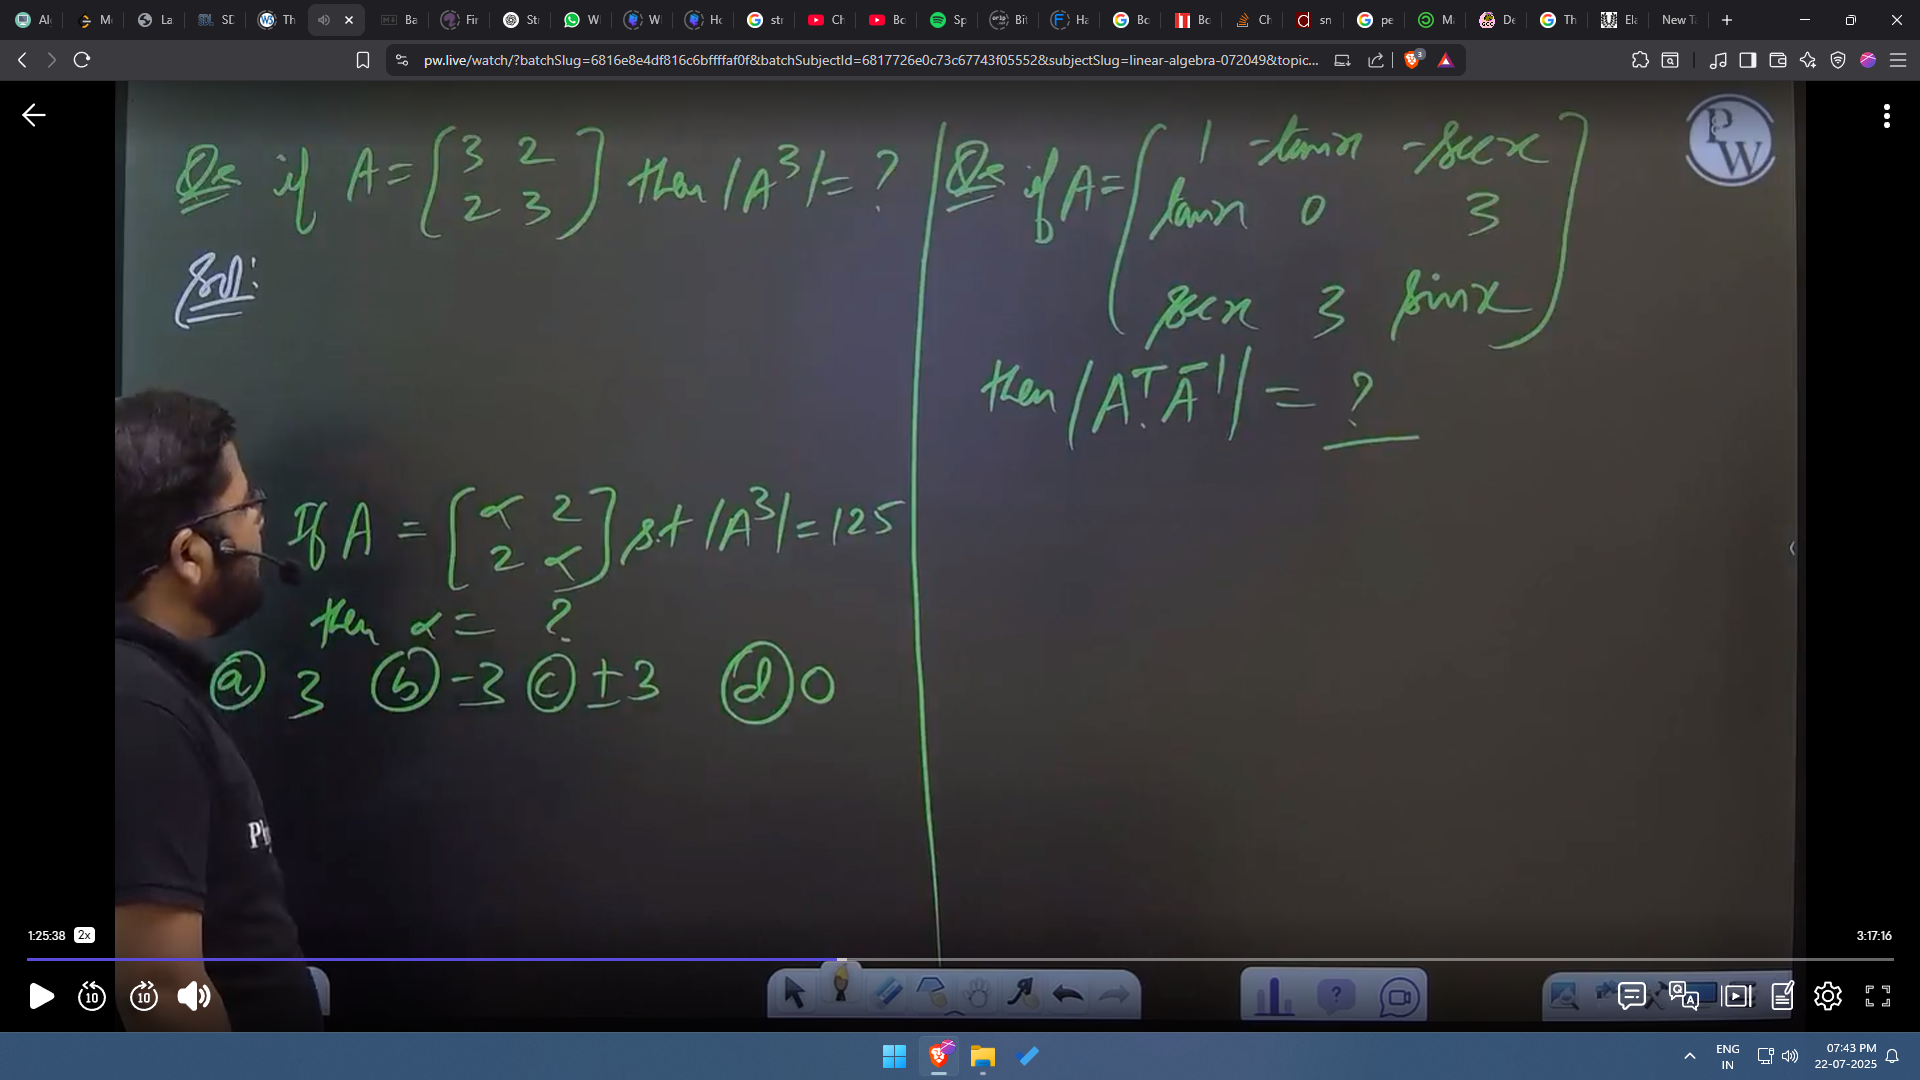 Al
M
La
SD
Th
Ba
Fir
Str
W
W
Ho
str
Ch
Bo
Sp
Bit
Ha
Bo
Bo
Ch
sn
pe
M
De
Th
Ela
New T
pw.live/watch/?batchSlug=6816e8e4df816c6bffffaf0f&batchSubjectId=6817726e0c73c67743f05552&subjectSlug=linear-algebra-072049&topic...
3
PW
Qs if A = [3 2
2 3] then |A³| = ?
Sol:
If A = [α 2
2 α] s.t |A³| = 125
then α = ?
(a) 3 (b) -3 (c) ±3 (d) 0
Qs if A = [1 -tanx -secx
tanx 0 3
secx 3 sinx]
then |Aᵀ.A⁻¹| = ?
Ph
1:25:38 2x
3:17:16
10 10
ENG
IN
07:43 PM
22-07-2025